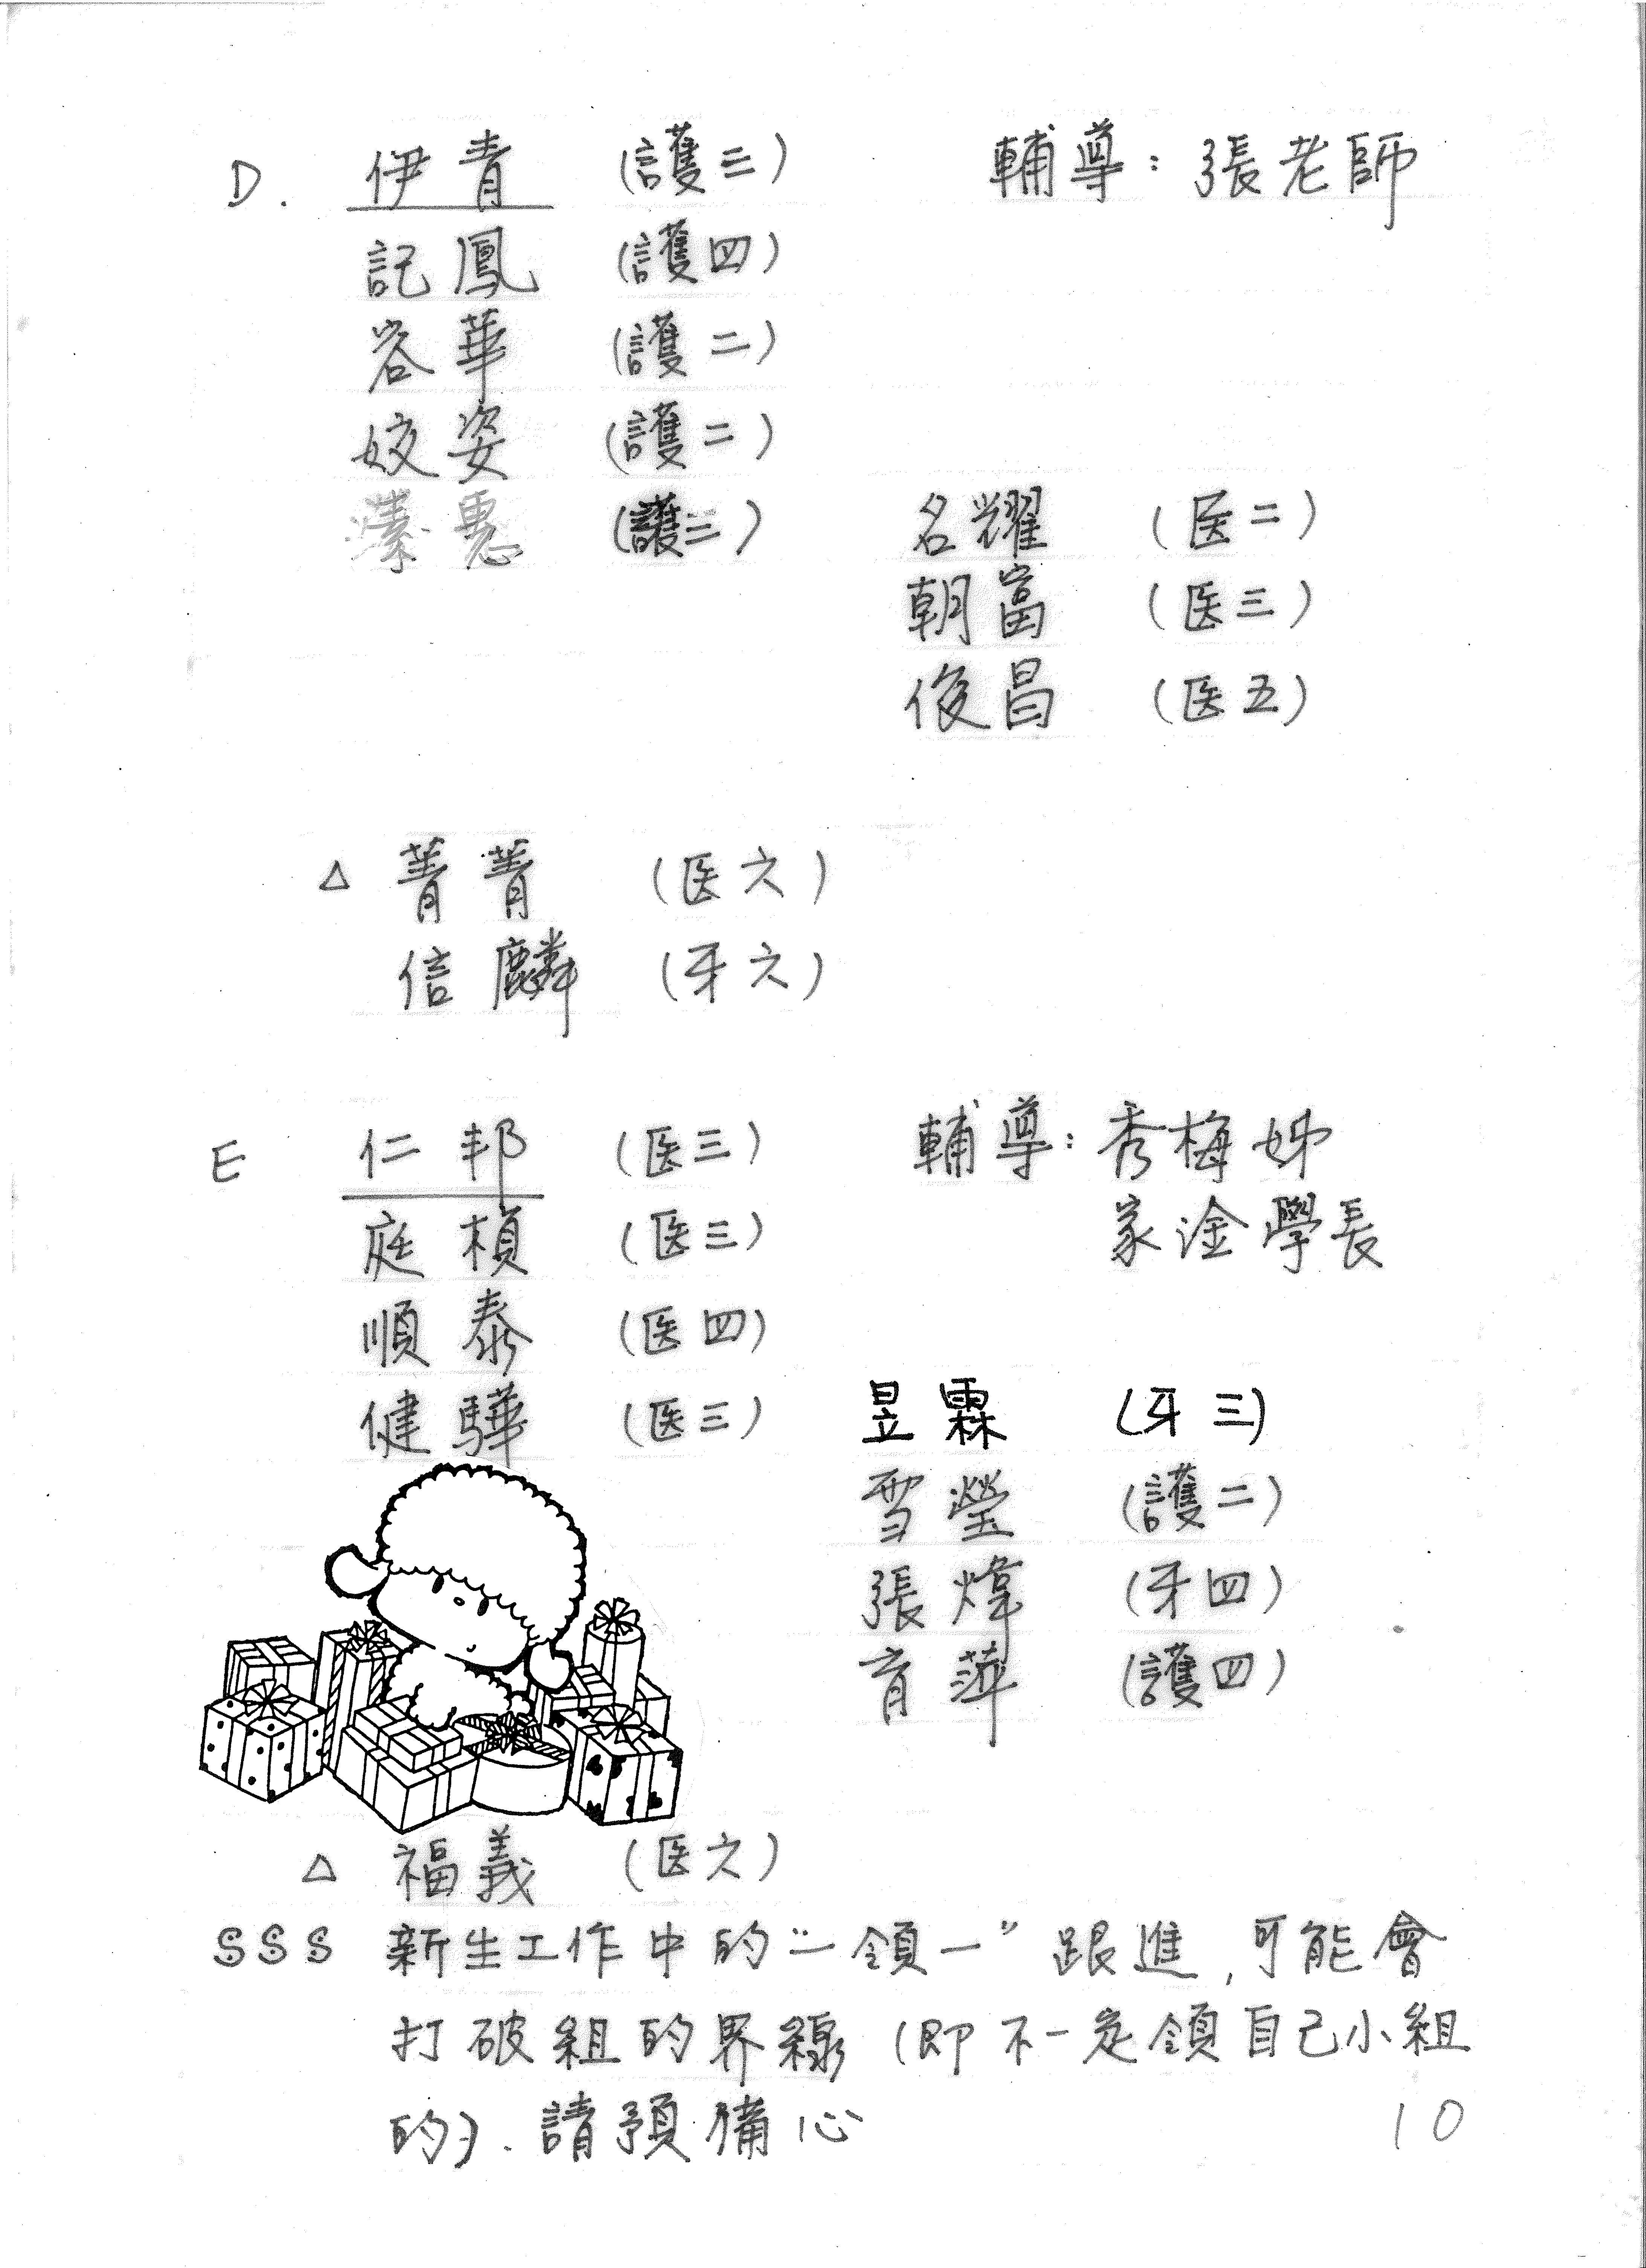 D. 伊青 (護三) 輔導：張老師
記鳳 (護四)
容華 (護二)
姣姿 (護二)
蓁惠 (護三) 名耀 (医二)
朝富 (医三)
俊昌 (医五)
△ 菁菁 (医六)
信麟 (牙六)
E 仁邦 (医三) 輔導：秀梅姊
庭楨 (医三) 家淦學長
順泰 (医四)
健驊 (医三) 昱霖 (牙三)
雪瑩 (護二)
張煒 (牙四)
育萍 (護四)
△ 福義 (医六)
SSS 新生工作中的“一領一”跟進,可能會
打破組的界線 (即不一定領自己小組
的). 請預備心
10